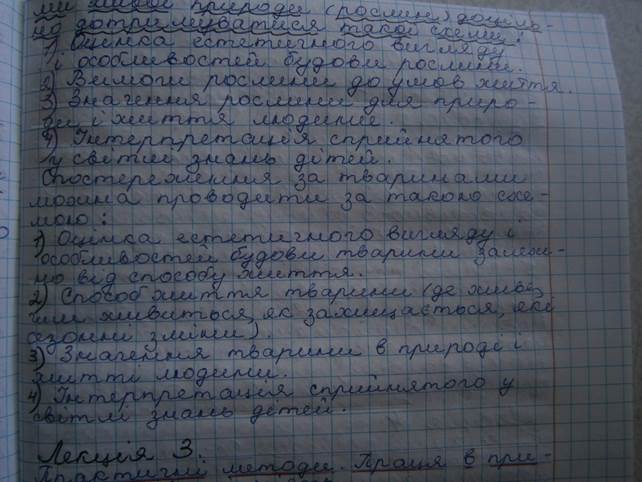 ми живої природи (рослин) доціль-
но дотримуватися такої схеми:
1) Оцінка естетичного вигляду
і особливостей будови рослини.
2) Вимоги рослини до умов життя.
3) Значення рослини для приро-
ди і життя людини.
4) Інтерпретація сприйнятого
у світлі знань дітей.
Спостереження за тваринами
можна проводити за такою схе-
мою:
1) Оцінка естетичного вигляду і
особливостей будови тварини залеж-
но від способу життя.
2) Спосіб життя тварини (де живе,
чим живиться, як захищається, які
сезонні зміни).
3) Значення тварини в природі і
житті людини.
4) Інтерпретація сприйнятого у
світлі знань дітей.
Лекція 3.
Практичні методи. Праця в при-